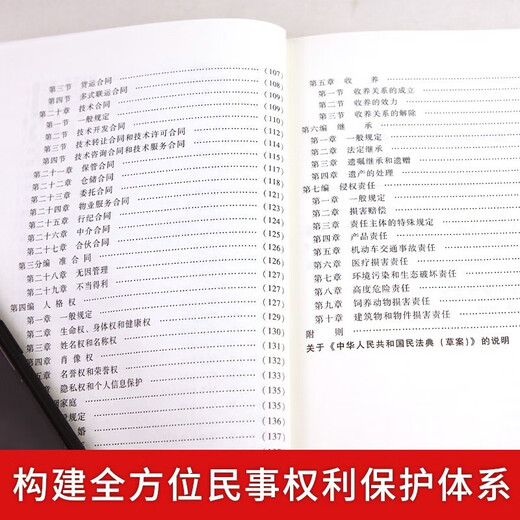 第三节 货运合同 (107)
第四节 多式联运合同 (108)
第二十章 技术合同 (109)
第一节 一般规定
第二节 技术开发合同
第三节 技术转让合同和技术许可合同
第四节 技术咨询合同和技术服务合同
第二十一章 保管合同
第二十二章 仓储合同
第二十三章 委托合同
第二十四章 物业服务合同
第二十五章 行纪合同
第二十六章 中介合同
第二十七章 合伙合同
第三分编 准合同
第二十八章 无因管理
第二十九章 不当得利
第四编 人格权
第一章 一般规定
第二章 生命权、身体权和健康权
第三章 姓名权和名称权
第四章 肖像权
第五章 名誉权和荣誉权
隐私权和个人信息保护
家庭
规定
婚
第五章 收养
第一节 收养关系的成立
第二节 收养的效力
第三节 收养关系的解除
第六编 继承
第一章 一般规定
第二章 法定继承
第三章 遗嘱继承和遗赠
第四章 遗产的处理
第七编 侵权责任
第一章 一般规定
第二章 损害赔偿
第三章 责任主体的特殊规定
第四章 产品责任
第五章 机动车交通事故责任
第六章 医疗损害责任
第七章 环境污染和生态破坏责任
第八章 高度危险责任
第九章 饲养动物损害责任
第十章 建筑物和物件损害责任
附则
关于《中华人民共和国民法典（草案）》的说明
构建全方位民事权利保护体系